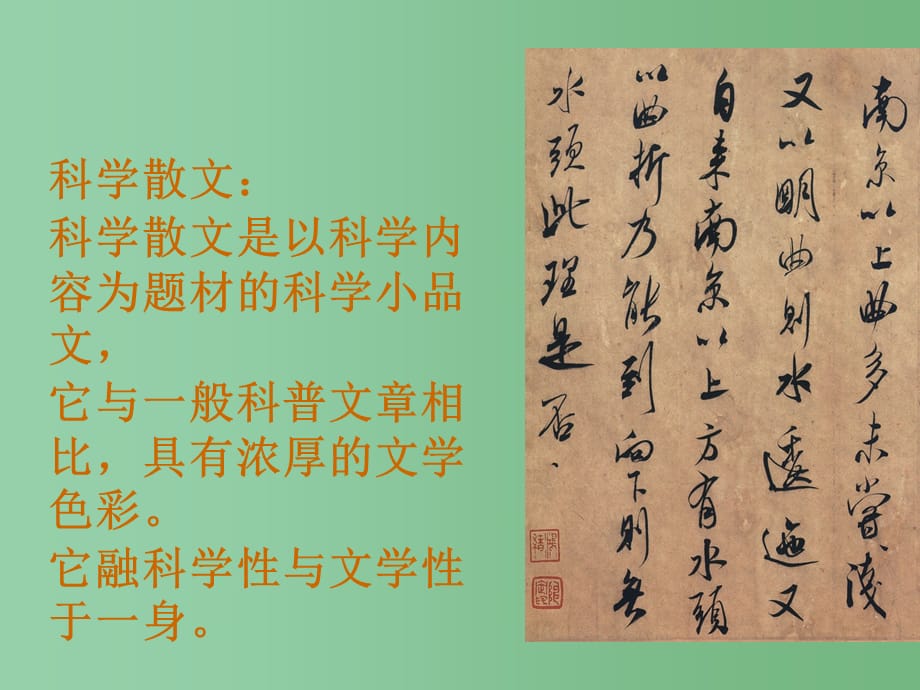 科学散文：
科学散文是以科学内
容为题材的科学小品
文，
它与一般科普文章相
比，具有浓厚的文学
色彩。
它融科学性与文学性
于一身。
南京以上曲多未嘗淺
又以明曲則水逶迤又
自来南京以上方有水頭
以曲折乃能到向下則無
水頭此理是否、